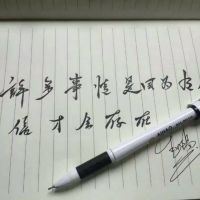 许多事情是因为相
信才会存在